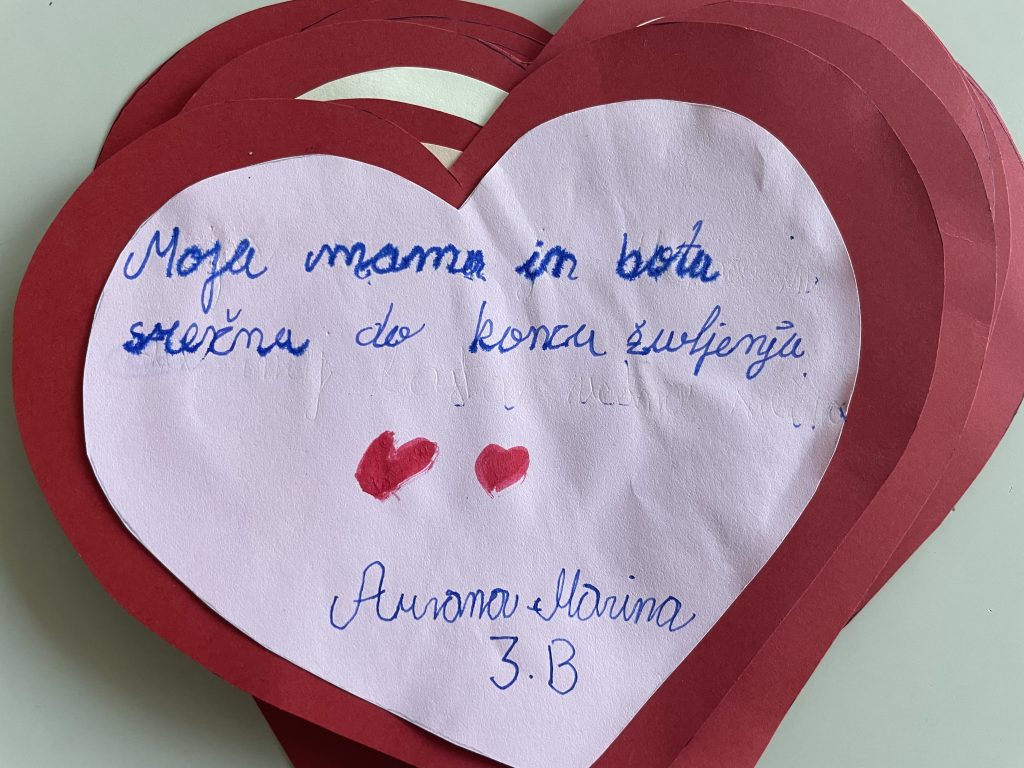 Moja mama in bota
srečna do konca življenja.
Marina
3.B